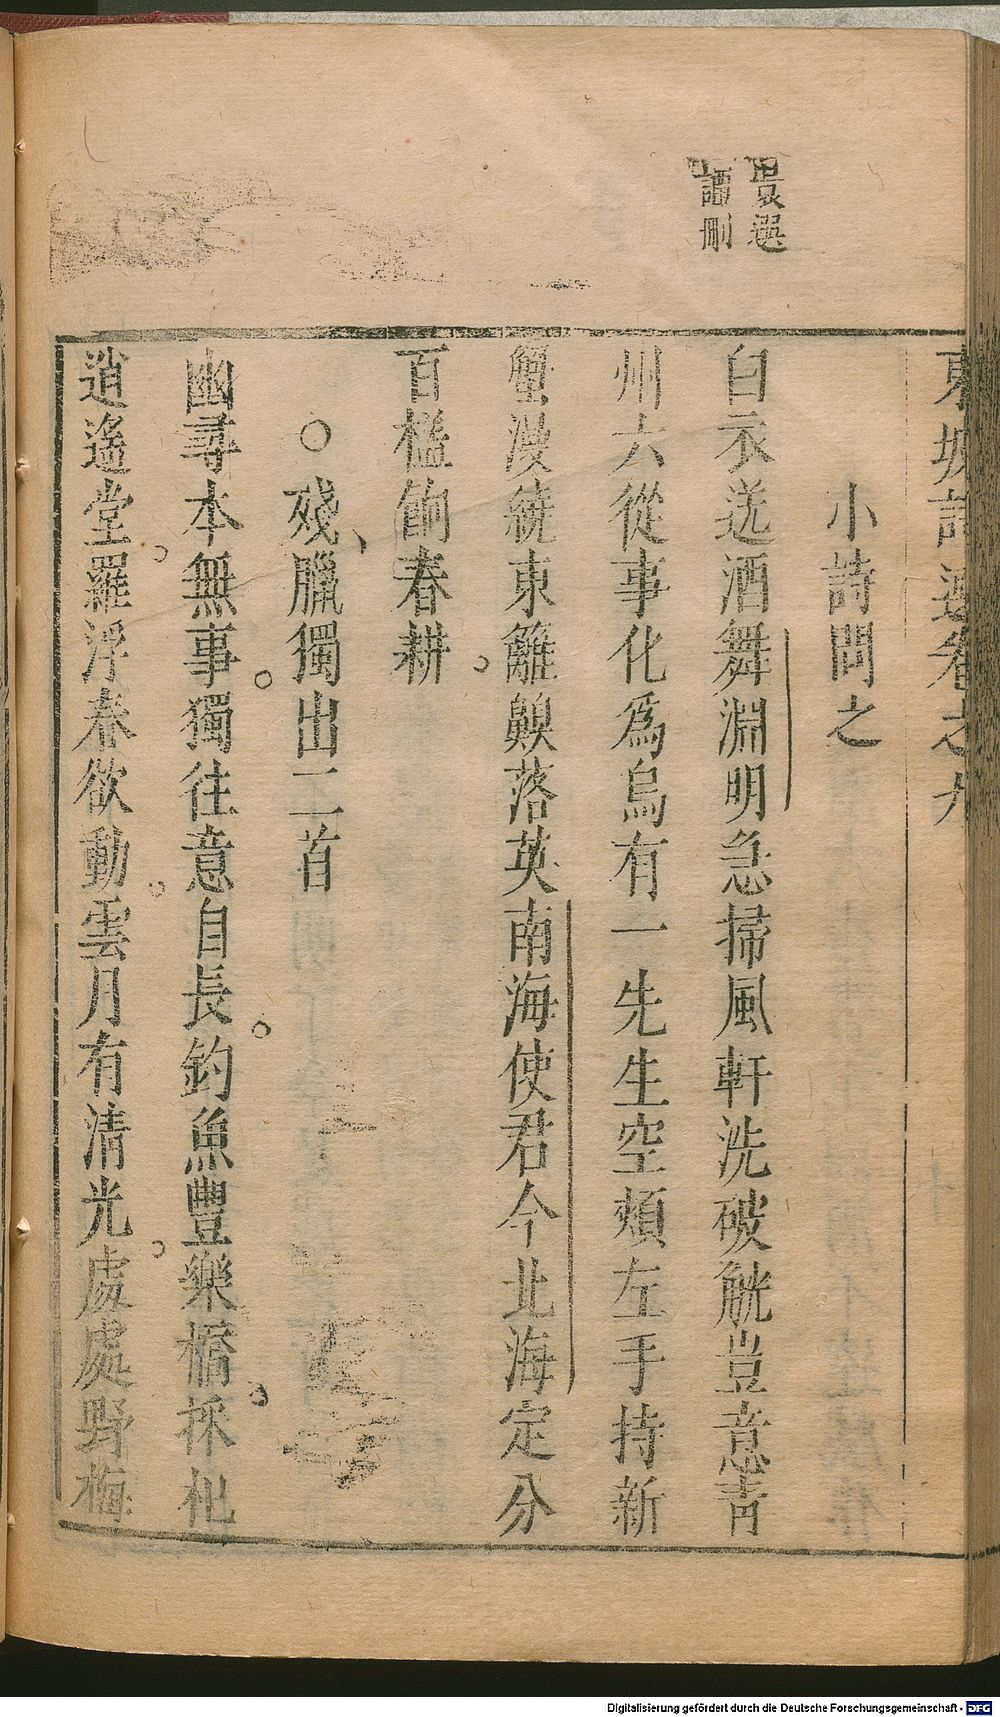 東坡詩選卷之九
小詩問之
白衣送酒舞淵明急掃風軒洗破觥豈意青
州六從事化爲烏有一先生空煩左手持新
蟹漫繞東籬嗅落英南海使君今北海定分
百榼餉春耕
○殘臘獨出二首
幽尋本無事獨往意自長釣魚豐樂橋採杞
逍遙堂羅浮春欲動雲月有清光處處野梅
選
譚刪
Digitalisierung gefördert durch die Deutsche Forschungsgemeinschaft - DFG